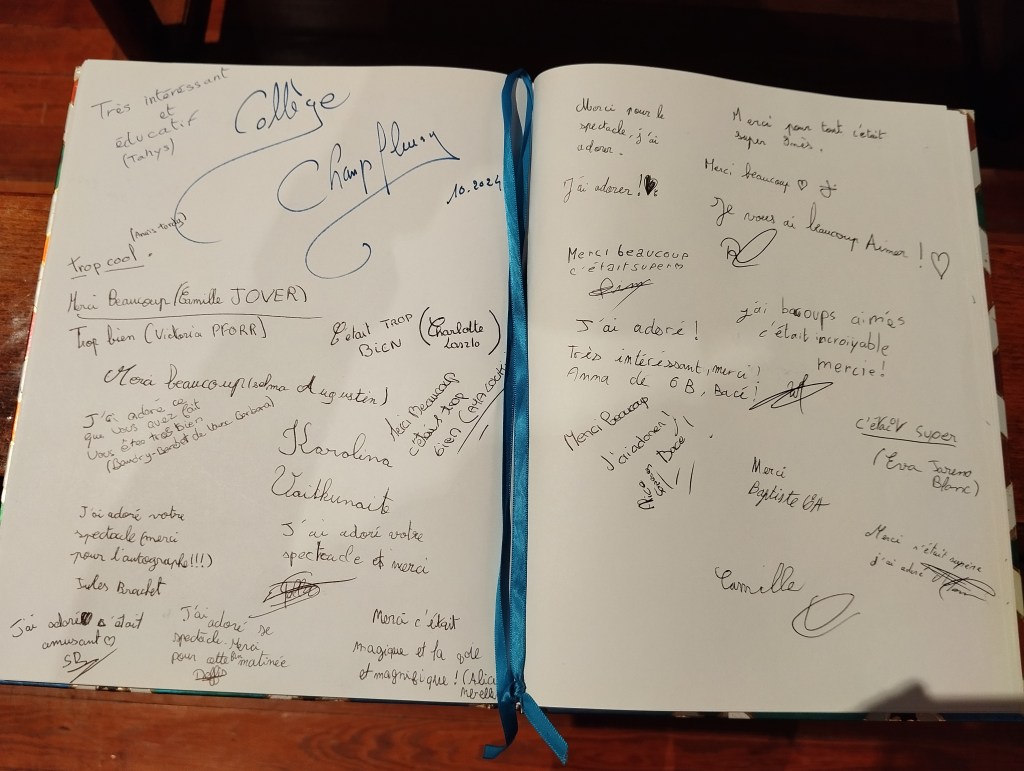 Très intéressant
et
éducatif
(Tahys)
Collège
Champfleury
10.2024
trop cool.
Merci Beaucoup (Camille JOVER)
Trop bien (Victoria PFORR)
C'était TROP
BiEN
(Charlotte
Laszlo)
Merci beaucoup (selma Augustin)
J'ai adoré ce
que vous avez fait
Vous êtes très bien
Merci Beaucoup
c'était trop
bien
Karolina
Vaitkunaite
J'ai adoré votre
spectacle (merci
pour l'autographe!!!)
Jules Brachet
J'ai adoré votre
spectacle et merci
J'ai adoré c'était
amusant ♡
SB
J'ai adoré se
spectacle. Merci
pour cette matinée
Merci c'était
magique et la voie
et magnifique! (Alice
Merci pour le
spectacle, j'ai
adorer.
Merci pour tout c'était
super
J'ai adorer!
Merci beaucoup ♡
Je vous ai beaucoup Aimer! ♡
Merci beaucoup
c'était super
J'ai adoré!
j'ai bacoups aimés
c'était incroiyable
mercie!
Très intéréssant, merci!
Anma de 6B, Bacé!
Merci Beaucoup
c'était super
(Eva Jareno
Blanc)
Merci
Baptiste
Merci c'était supère
j'ai adoré
Camille